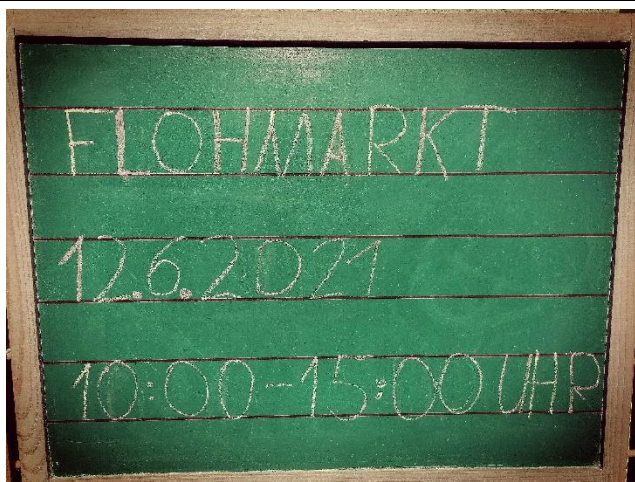 FLOHMARKT
12.6.2021
10:00-15:00 UHR